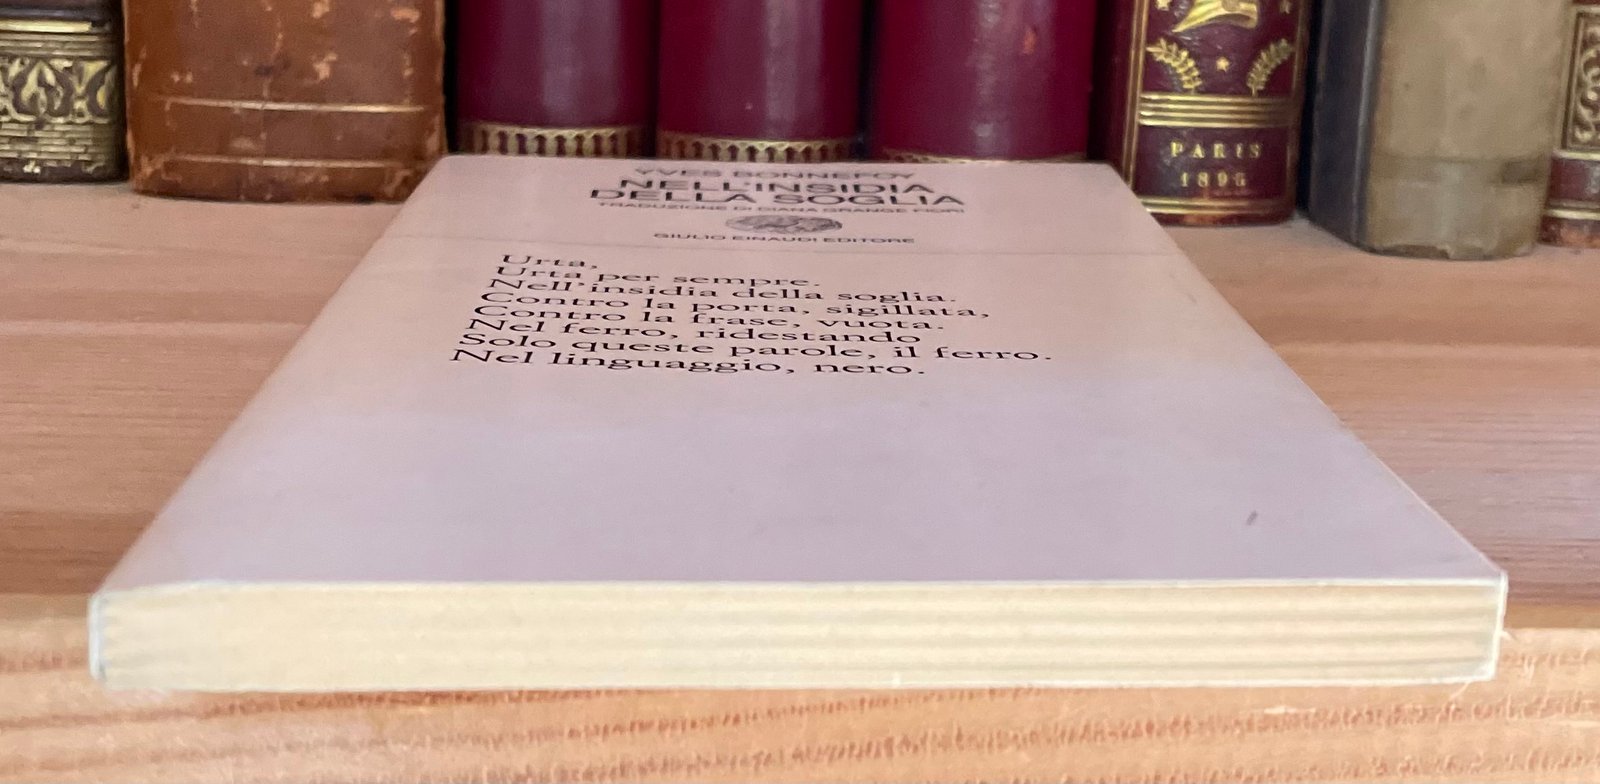 YVES BONNEFOY
NELL'INSIDIA
DELLA SOGLIA
TRADUZIONE DI DIANA GRANGE FIORI
GIULIO EINAUDI EDITORE
Urta,
Urta per sempre.
Nell'insidia della soglia.
Contro la porta, sigillata,
Contro la frase, vuota.
Nel ferro, ridestando
Solo queste parole, il ferro.
Nel linguaggio, nero.
PARIS
1896